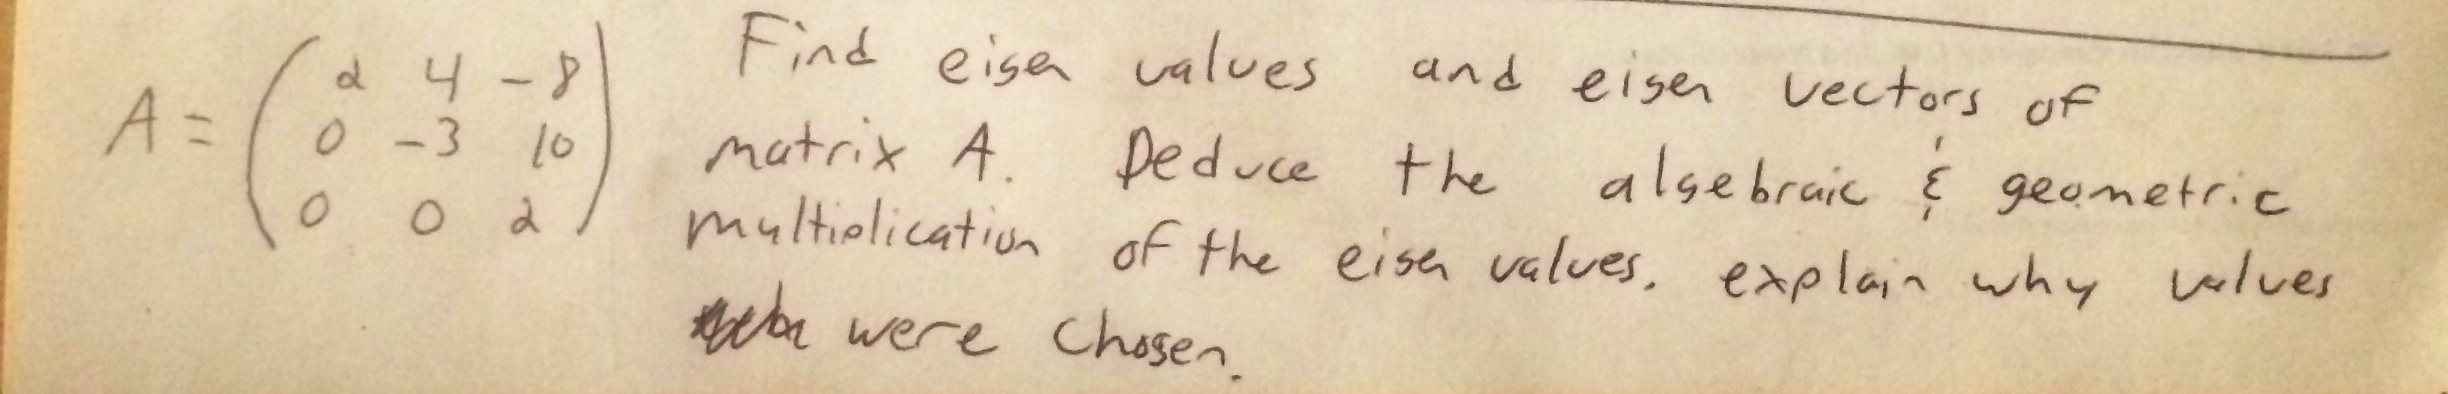 A = ( 2 4 -8
0 -3 10
0 0 2 )
Find eigen values and eigen vectors of
matrix A. Deduce the algebraic & geometric
multiplication of the eigen values. explain why values
were chosen.